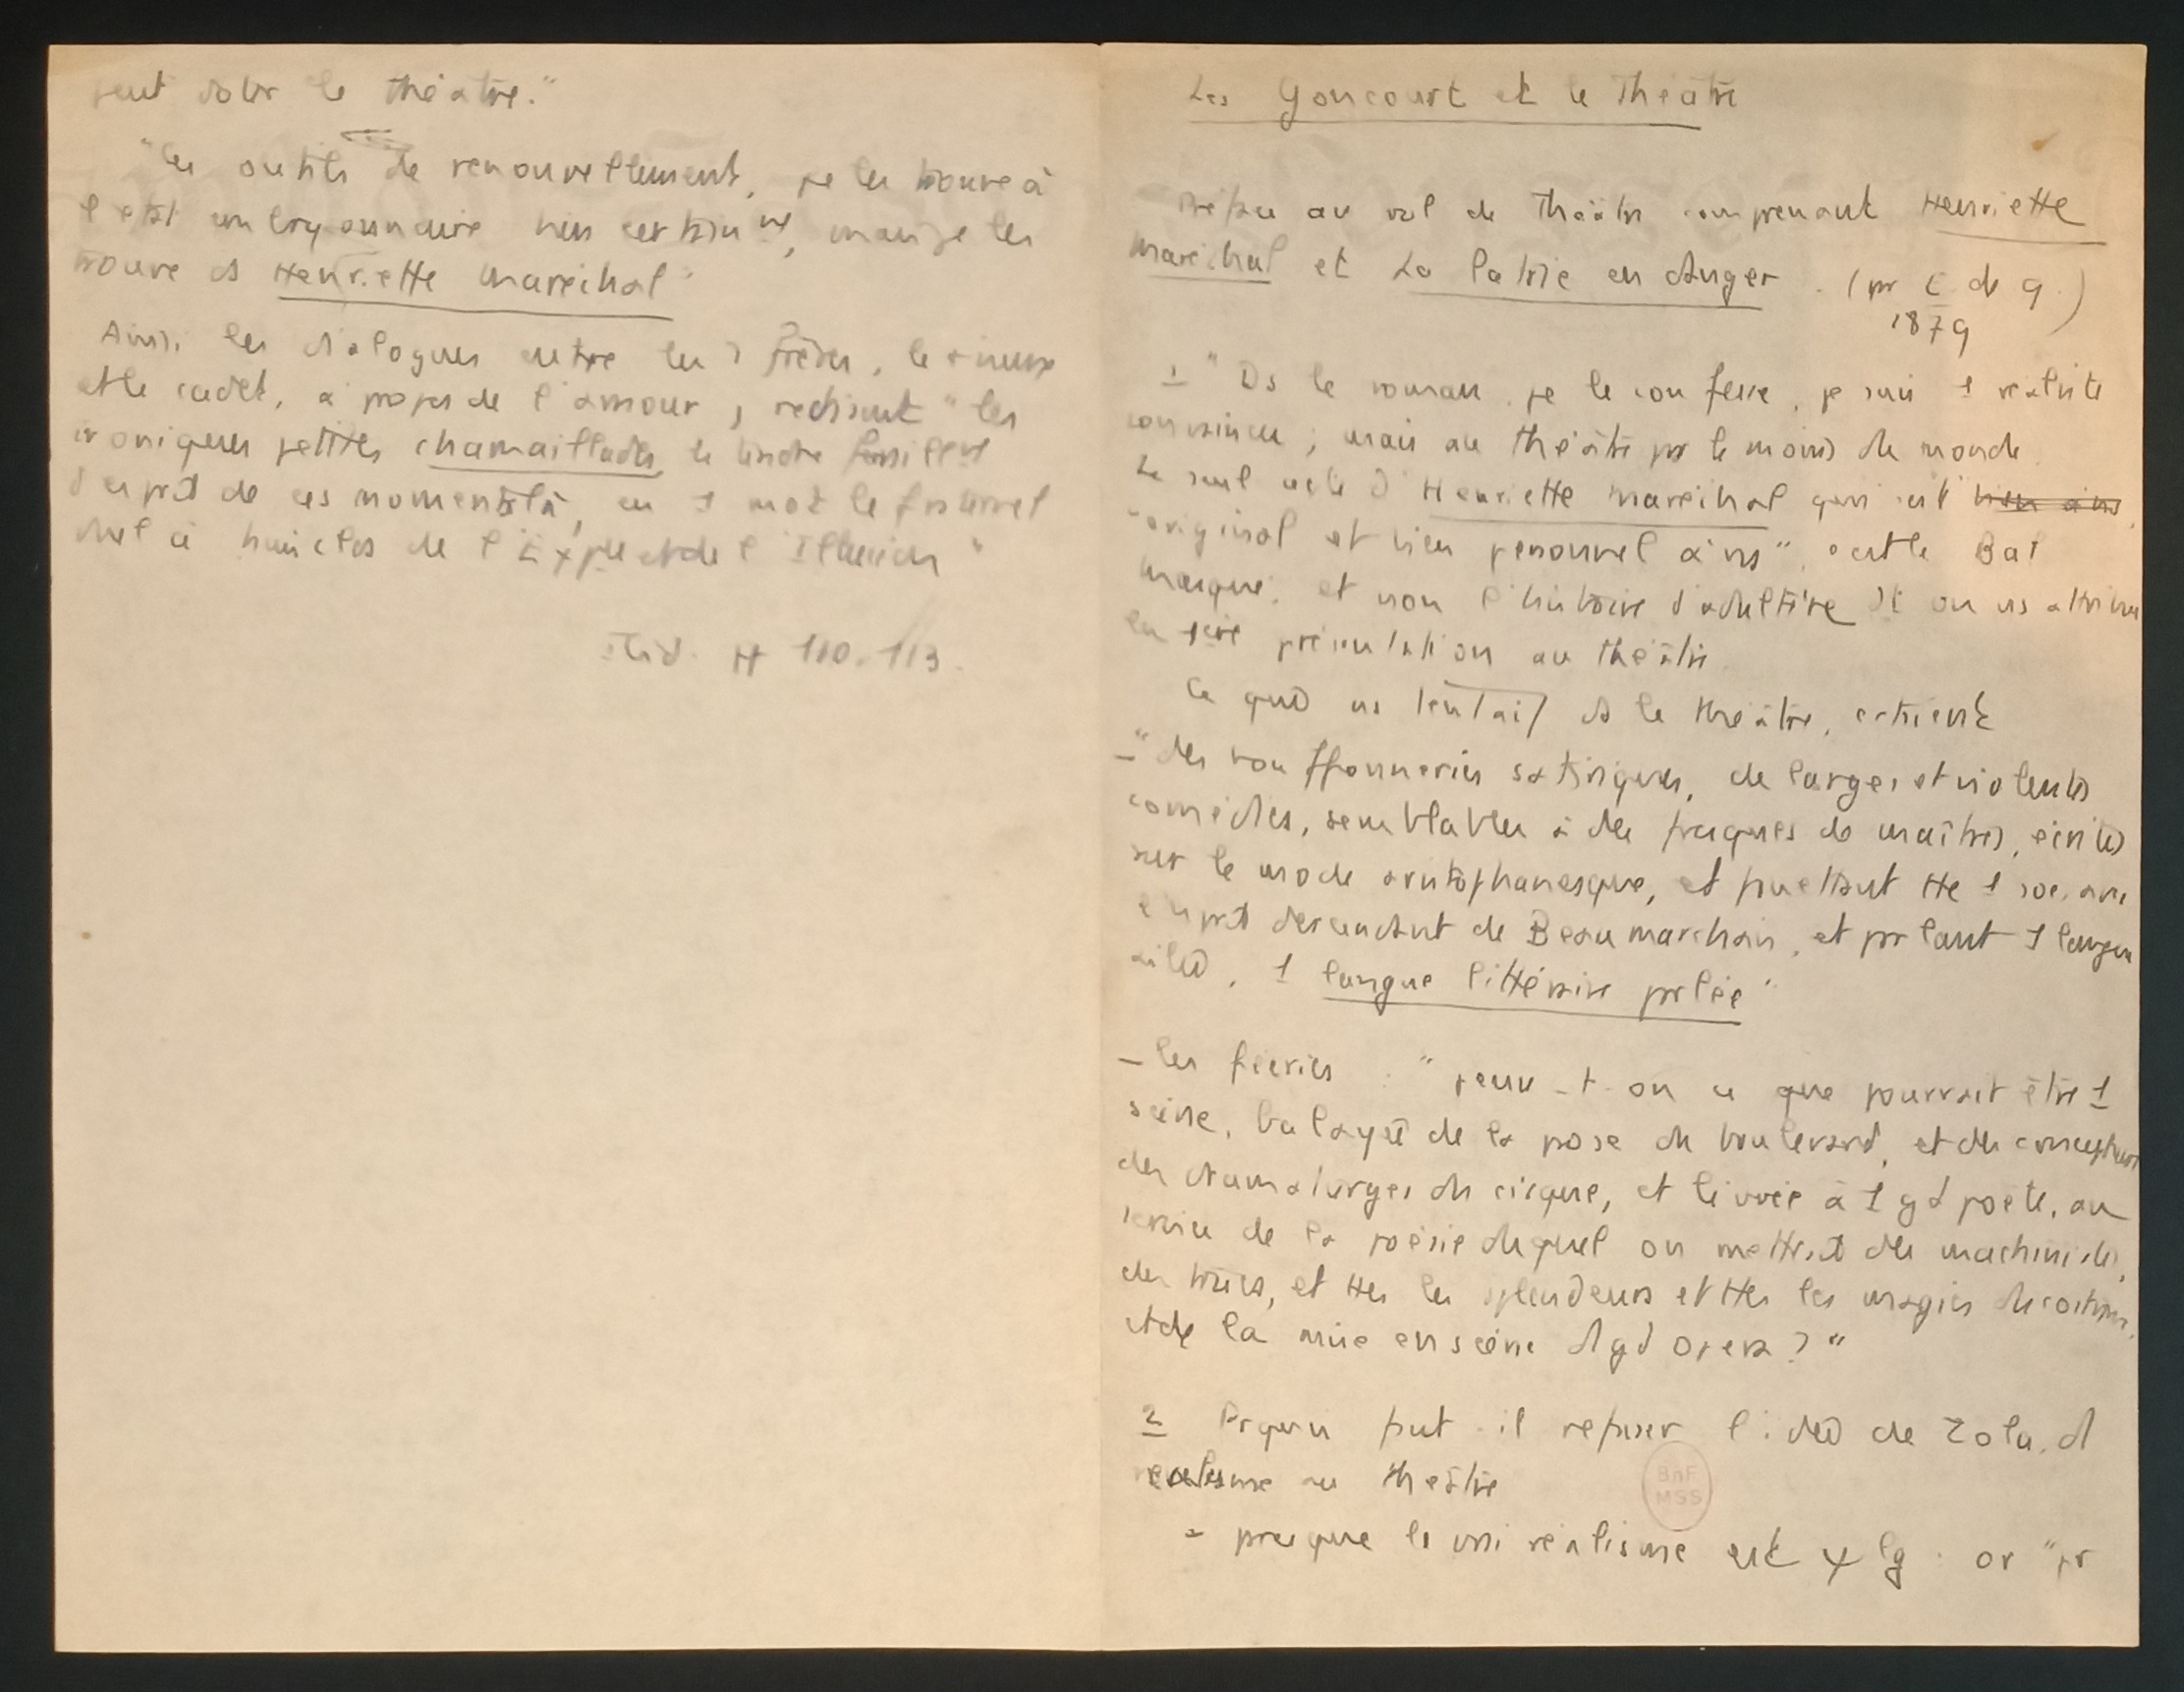 peut sous le théâtre."
"les outils de renouvellement, je les trouve à
l'état embryonnaire bien certain nt, mais je les
trouve ds Henriette Maréchal"
Ainsi les dialogues entre les 2 frères, le vieux
et le cadet, à propos de l'amour, "les
ironiques petites chamaillades, le tendre
d'esprit de ces moments là, en 1 mot le fraternel
duel à huis clos de l'Expce et de l'Illusion"
Ibid. pp 110-113.
Les Goncourt et le Théâtre
Préface au vol de Théâtre comprenant Henriette
Maréchal et La Patrie en danger. (pr E de G.)
1879
1 "Ds le roman, je le confesse, je suis 1 réaliste
convaincu; mais au théâtre pr le moins du monde
Le seul acte d'Henriette Maréchal qui soit bien à ns,
"original et bien personnel à ns", c'est le Bal
Masqué, et non l'histoire d'adultère dt on ns attribue
la 1ère présentation au théâtre.
Ce qui ns tentait ds le théâtre, c'était
- "des bouffonneries satiriques, de larges et violentes
comédies, semblables à des fresques de maîtres, écrites
sur le mode aristophanesque, et fouettant tte 1 soc. avec
esprit descendant de Beaumarchais, et prlant 1 langue
ailée, 1 langue littéraire prlée"
- les féeries : " - t - on ce que pourrait être 1
scène, balayée de la prose du boulevard, et des conceptions
des dramaturges du cirque, et livrée à 1 gd poète, au
service de la poésie duquel on mettrait des machinistes,
des trucs, et ttes les splendeurs et ttes les magies du costume,
et de la mise en scène d 1 gd Opéra?"
2 Prquoi fut-il refuser l'idée de Zola, d
réalisme au théâtre
- presque le vrai réalisme est : or "pr
BnF
MSS